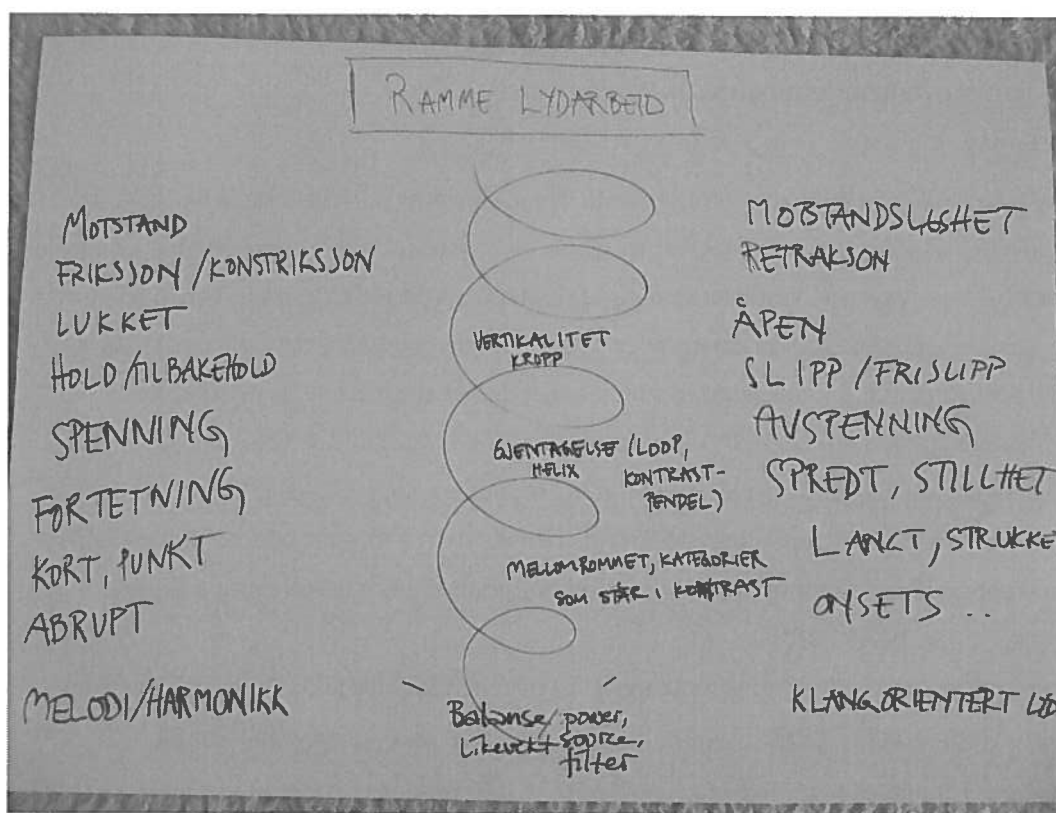 RAMME LYDARBEID
MOTSTAND
FRIKSJON / KONSTRIKSJON
LUKKET
HOLD / TILBAKEHOLD
SPENNING
FORTETNING
KORT, PUNKT
ABRUPT
MELODI/HARMONIKK
VERTIKALITET
KROPP
GJENTAGELSE (LOOP,
HELIX KONTRAST-
PENDEL)
MELLOMROMMET, KATEGORIER
SOM STÅR I KONTRAST
Balanse/power,
Likevekt source,
filter
MOTSTANDSLØSHET
RETRAKSON
ÅPEN
SLIPP / FRISLIPP
AVSPENNING
SPREDT, STILLHET
LANGT, STRUKKE
ONSETS ..
KLANGORIENTERT LYD